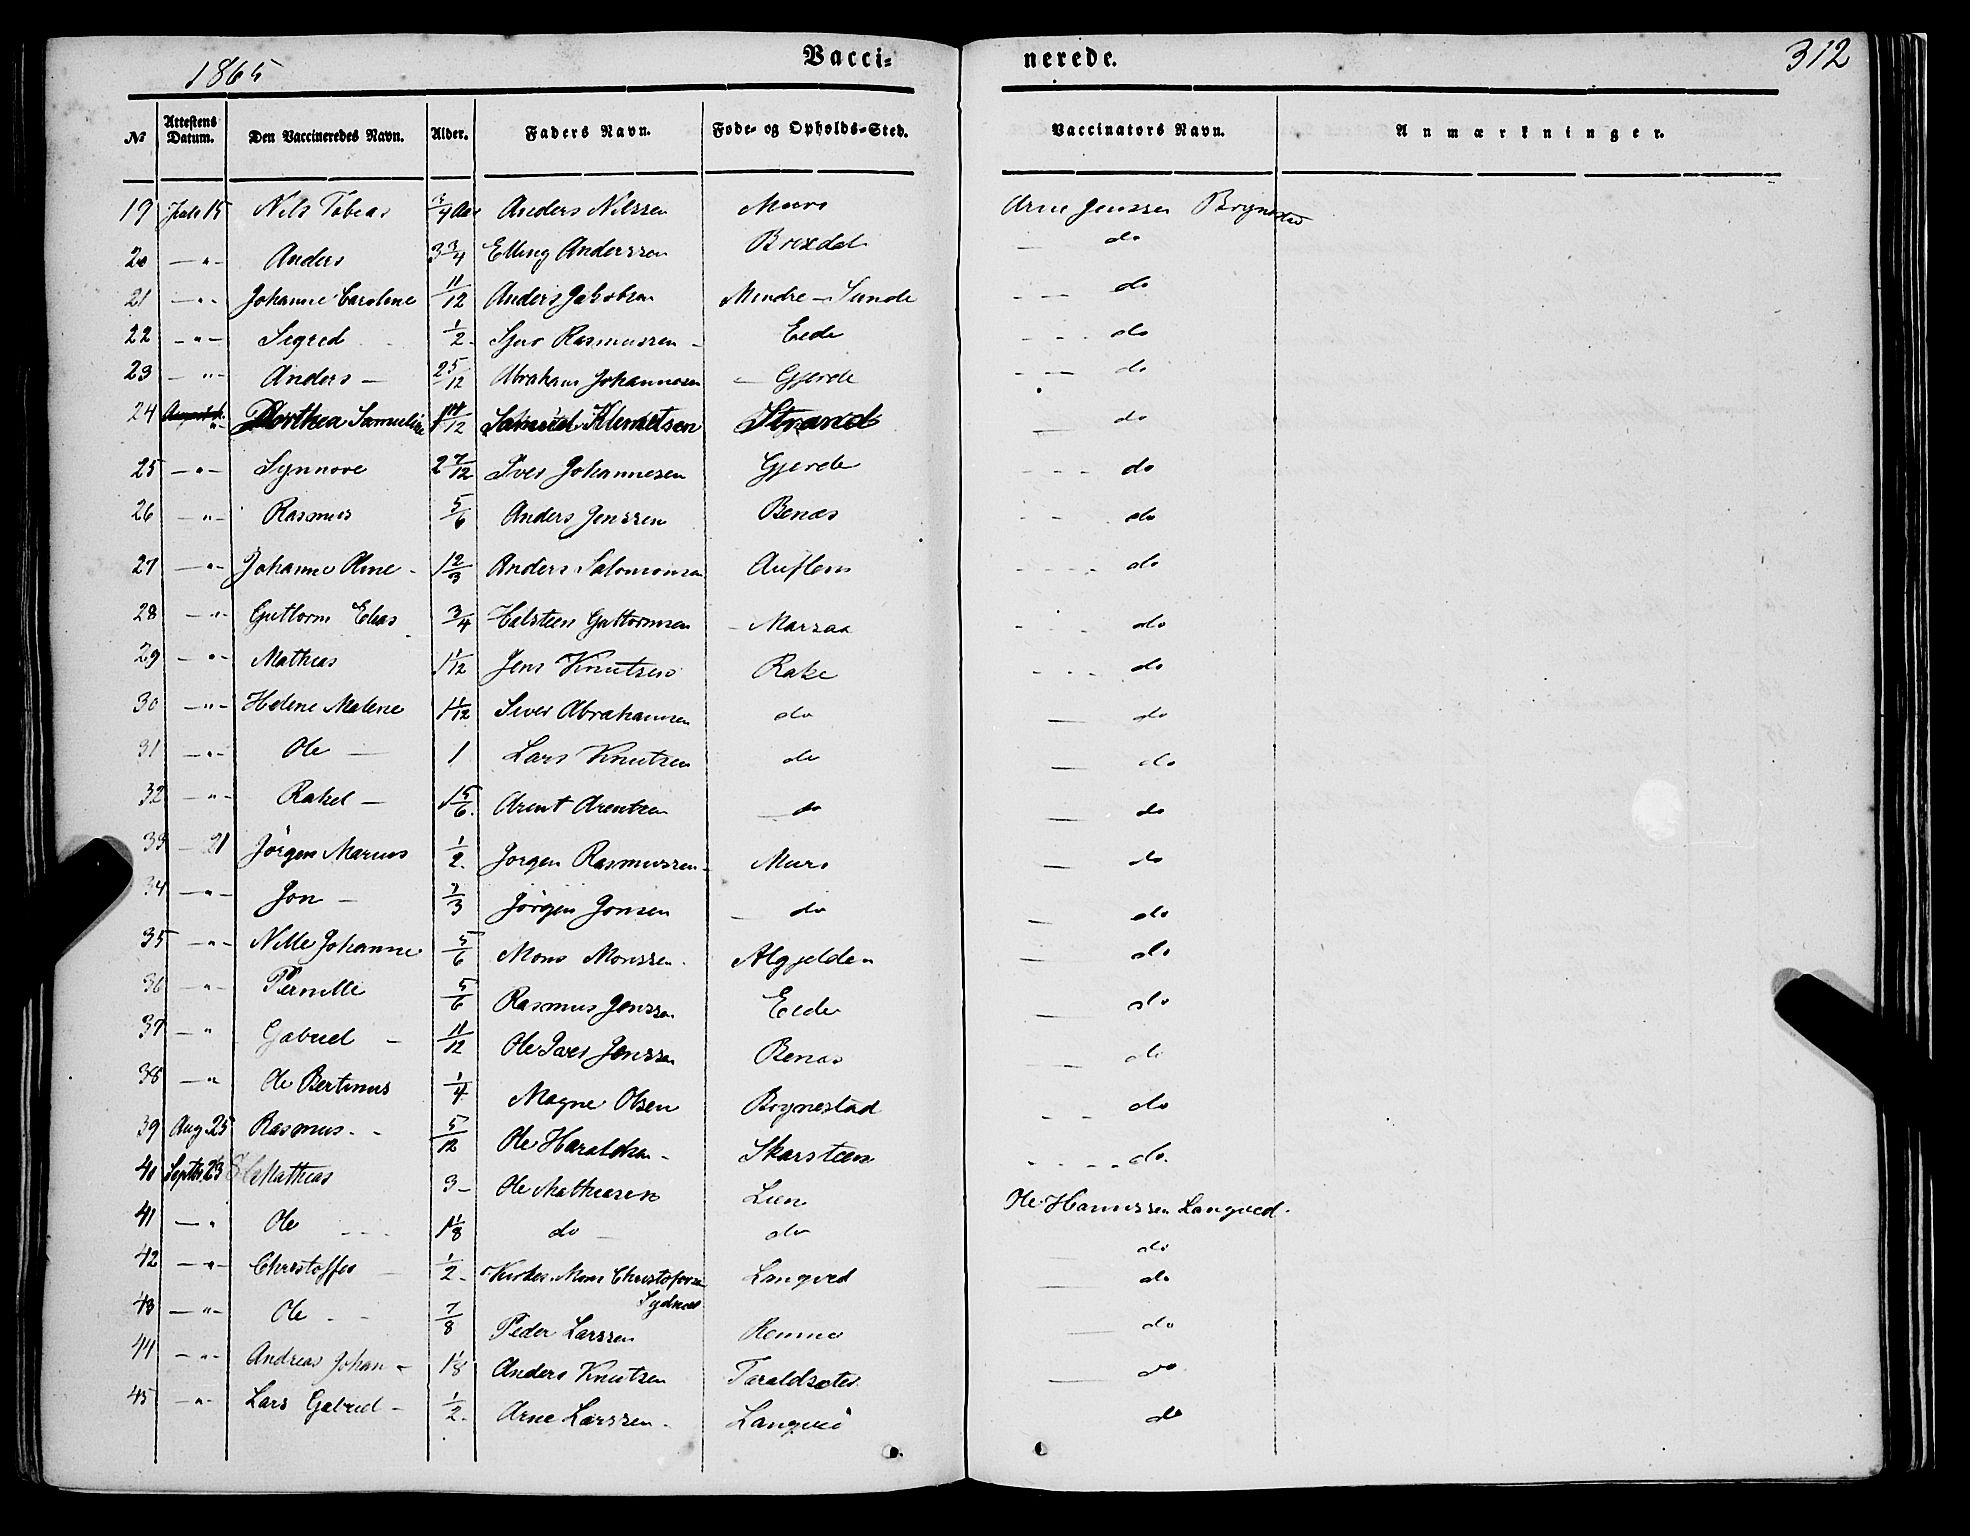 1865 Vacci- nerede. 312
No Attestens Datum. Den Vaccineredes Navn. Alder. Faders Navn. Føde- og Opholds-Sted. Vaccinators Navn. Anmærkninger.
19 Juli 15 Nils Tobias 3/4 Aar Anders Nilssen Muri Arne Jenssen Brynestad
20 — " — Anders 3 3/4 Elling Anderssen Brixdal — do
21 — " — Johanne Caroline 11/12 Anders Jakobsen Mindre-Sunde - - - do
22 — " — Sigrid 1/2 Sjur Rasmussen Eide - - - do
23 — " — Anders — 25/12 Abraham Johannesen Gjerde - - - do
24 — " — Dorthea Samueline 1 11/12 Samuel Klemetsen Strand — do
25 — " — Synnove 2 7/12 Iver Johannesen Gjerde - - - do
26 — " — Rasmus 5/6 Anders Jenssen Benæs - - - do
27 — " — Johanne Oline - 1 2/3 Anders Salomonsen Auflem - - - do
28 — " — Guttorm Elias 3/4 Halsteen Guttormsen Marsaa - - - do
29 — " — Mathias 1 1/12 Jens Knutsen Rake - - - do
30 — " — Helene Malene 1 1/12 Siver Abrahamsen do — do
31 — " — Ole — 1 Lars Knutsen do — do
32 — " — Rakel — 1 5/6 Arent Arentsen — do — do
33 — 21 Jörgen Marius 1/2 Jorgen Rasmussen Muri — do
34 — " — Jon — 2/3 Jörgen Jonsen — do — do
35 — " — Nille Johanne 5/6 Mons Monssen Algjelden — do
36 — " — Pernille 5/6 Rasmus Jenssen Eide — do
37 — " Gabriel — 11/12 Ole Iver Jenssen Benæs — do
38 — " Ole Bertinus 1/4 Magne Olsen Brynestad - - do
39 Aug. 25 Rasmus - - 5/12 Ole Haraldsen Skarsteen - - - - do.
40 Septbr. 23 Mathias 3 — Ole Mathiasen Lien Ole Hanssen Langved.
41 — " Ole - - - 1 1/8 do — do — do
42 — " — Christoffer 1/2 Kirkes. Mons Christofersen Sydnes Langved — do
43 — " — Ole - - 7/8 Peder Larssen Remme — do
44 — " — Andreas Johan - 1 1/8 Anders Knutsen Taraldsæter — do
45 — " — Lars Gabriel - 1/2 Arne Larssen Langved do